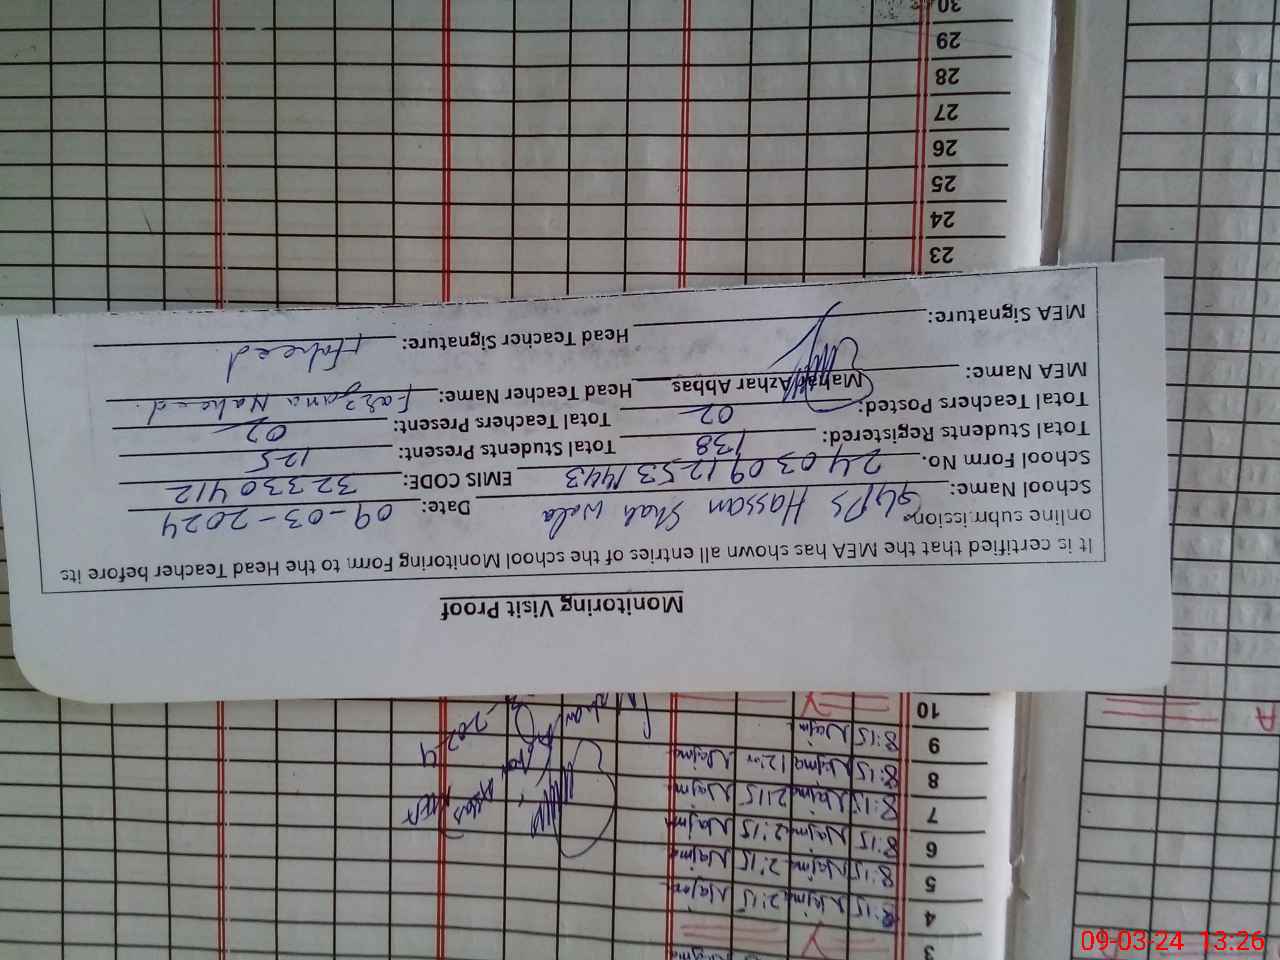 Monitoring Visit Proof
It is certified that the MEA has shown all entries of the school Monitoring Form to the Head Teacher before its
online submission.
School Name: GGPS Hassan Shah Wala Date: 09-03-2024
School Form No. 24030912531443 EMIS CODE: 32330412
Total Students Registered: 138 Total Students Present: 125
Total Teachers Posted: 02 Total Teachers Present: 02
MEA Name: Mahar Azhar Abbas Head Teacher Name: Farzana Naheed
MEA Signature: Head Teacher Signature: Naheed
3 Y Najma
4 8:15 Najma 2:15 Najma
5 8:15 Najma 2:15 Najma
6 8:15 Najma 2:15 Najma
7 8:15 Najma 2:15 Najma
8 8:15 Najma 12:00 Najma
9 8:15 Najma
10 Y
23
24
25
26
27
28
29
30
A
09-03-24 13:26